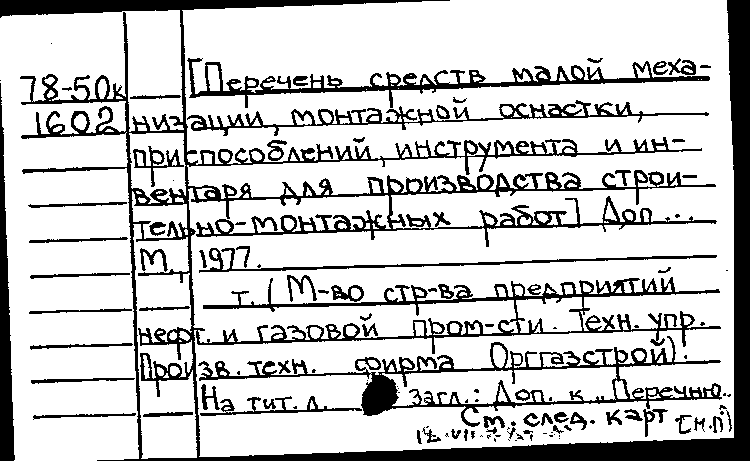 78-50к [Перечень средств малой меха-
1602 низации, монтажной оснастки,
приспособлений, инструмента и ин-
вентаря для производства строи-
тельно-монтажных работ] Доп...
М., 1977.
т. (М-во стр-ва предприятий
нефт. и газовой пром-сти. Техн. упр.
Произв. техн. фирма Оргтазстрой).
На тит. л. загл.: Доп. к „Перечню..
См. след. карт [М.П]